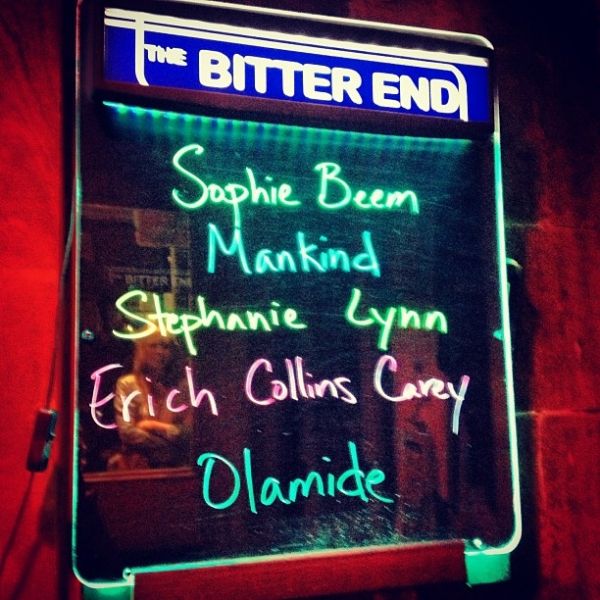 THE BITTER END
Sophie Beem
Mankind
Stephanie Lynn
Erich Collins Carey
Olamide